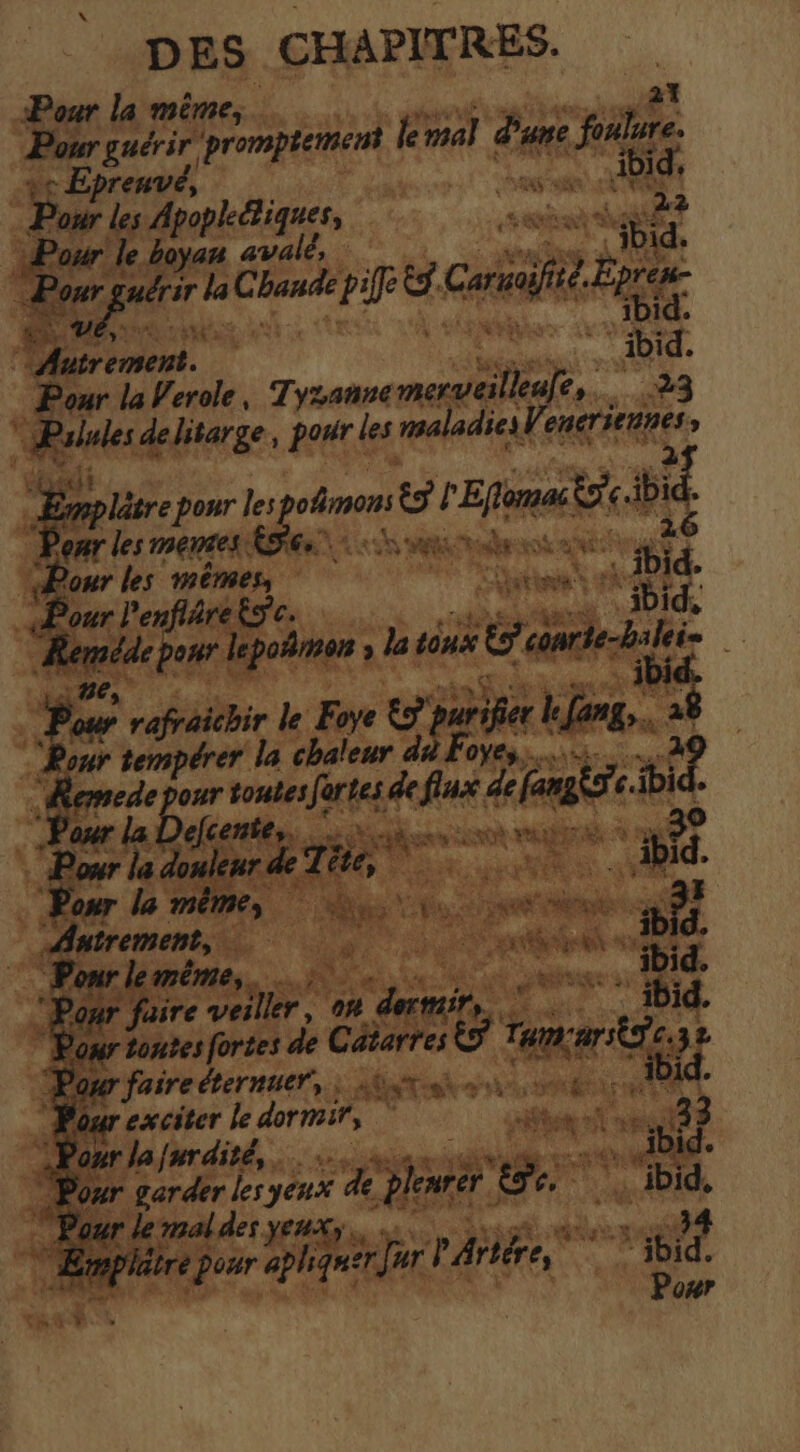 DES CHAPITRES.
Pour la même, 21
Pour guérir promptement le mal d'une foulure.
Epreuvé, ibid.
Pour les Apoplectiques, 22
Pour le boyau avalé, ibid.
Pour guérir la Chaude pisse & Carnosité. Epreu-
vé, ibid.
Autrement. ibid.
Pour la Verole, Tyzanne merveilleuse, 23
Pilules de litarge, pour les maladies Veneriennes,
25
Emplâtre pour les poûmons & l'Estomac &c. ibid.
Pour les mêmes &c. 26
Pour les mêmes, ibid.
Pour l'enflûre &c. ibid.
Reméde pour le poûmon, la toux & courte-halei-
ne, ibid.
Pour rafraichir le Foye & purifier le sang, 28
Pour tempérer la chaleur du Foye, 29
Remede pour toutes sortes de flux de sang &c. ibid.
Pour la Descente, 30
Pour la douleur de Tête, ibid.
Pour la même, 31
Autrement, ibid.
Pour le même, ibid.
Pour faire veiller, on dormir, ibid.
Pour toutes sortes de Catarres & Tumeurs &c. 32
Pour faire éternuer, ibid.
Pour exciter le dormir, 33
Pour la surdité, ibid.
Pour garder les yeux de pleurer &c. ibid.
Pour le mal des yeux, 34
Emplâtre pour apliquer sur l'Artére, ibid.
Pour